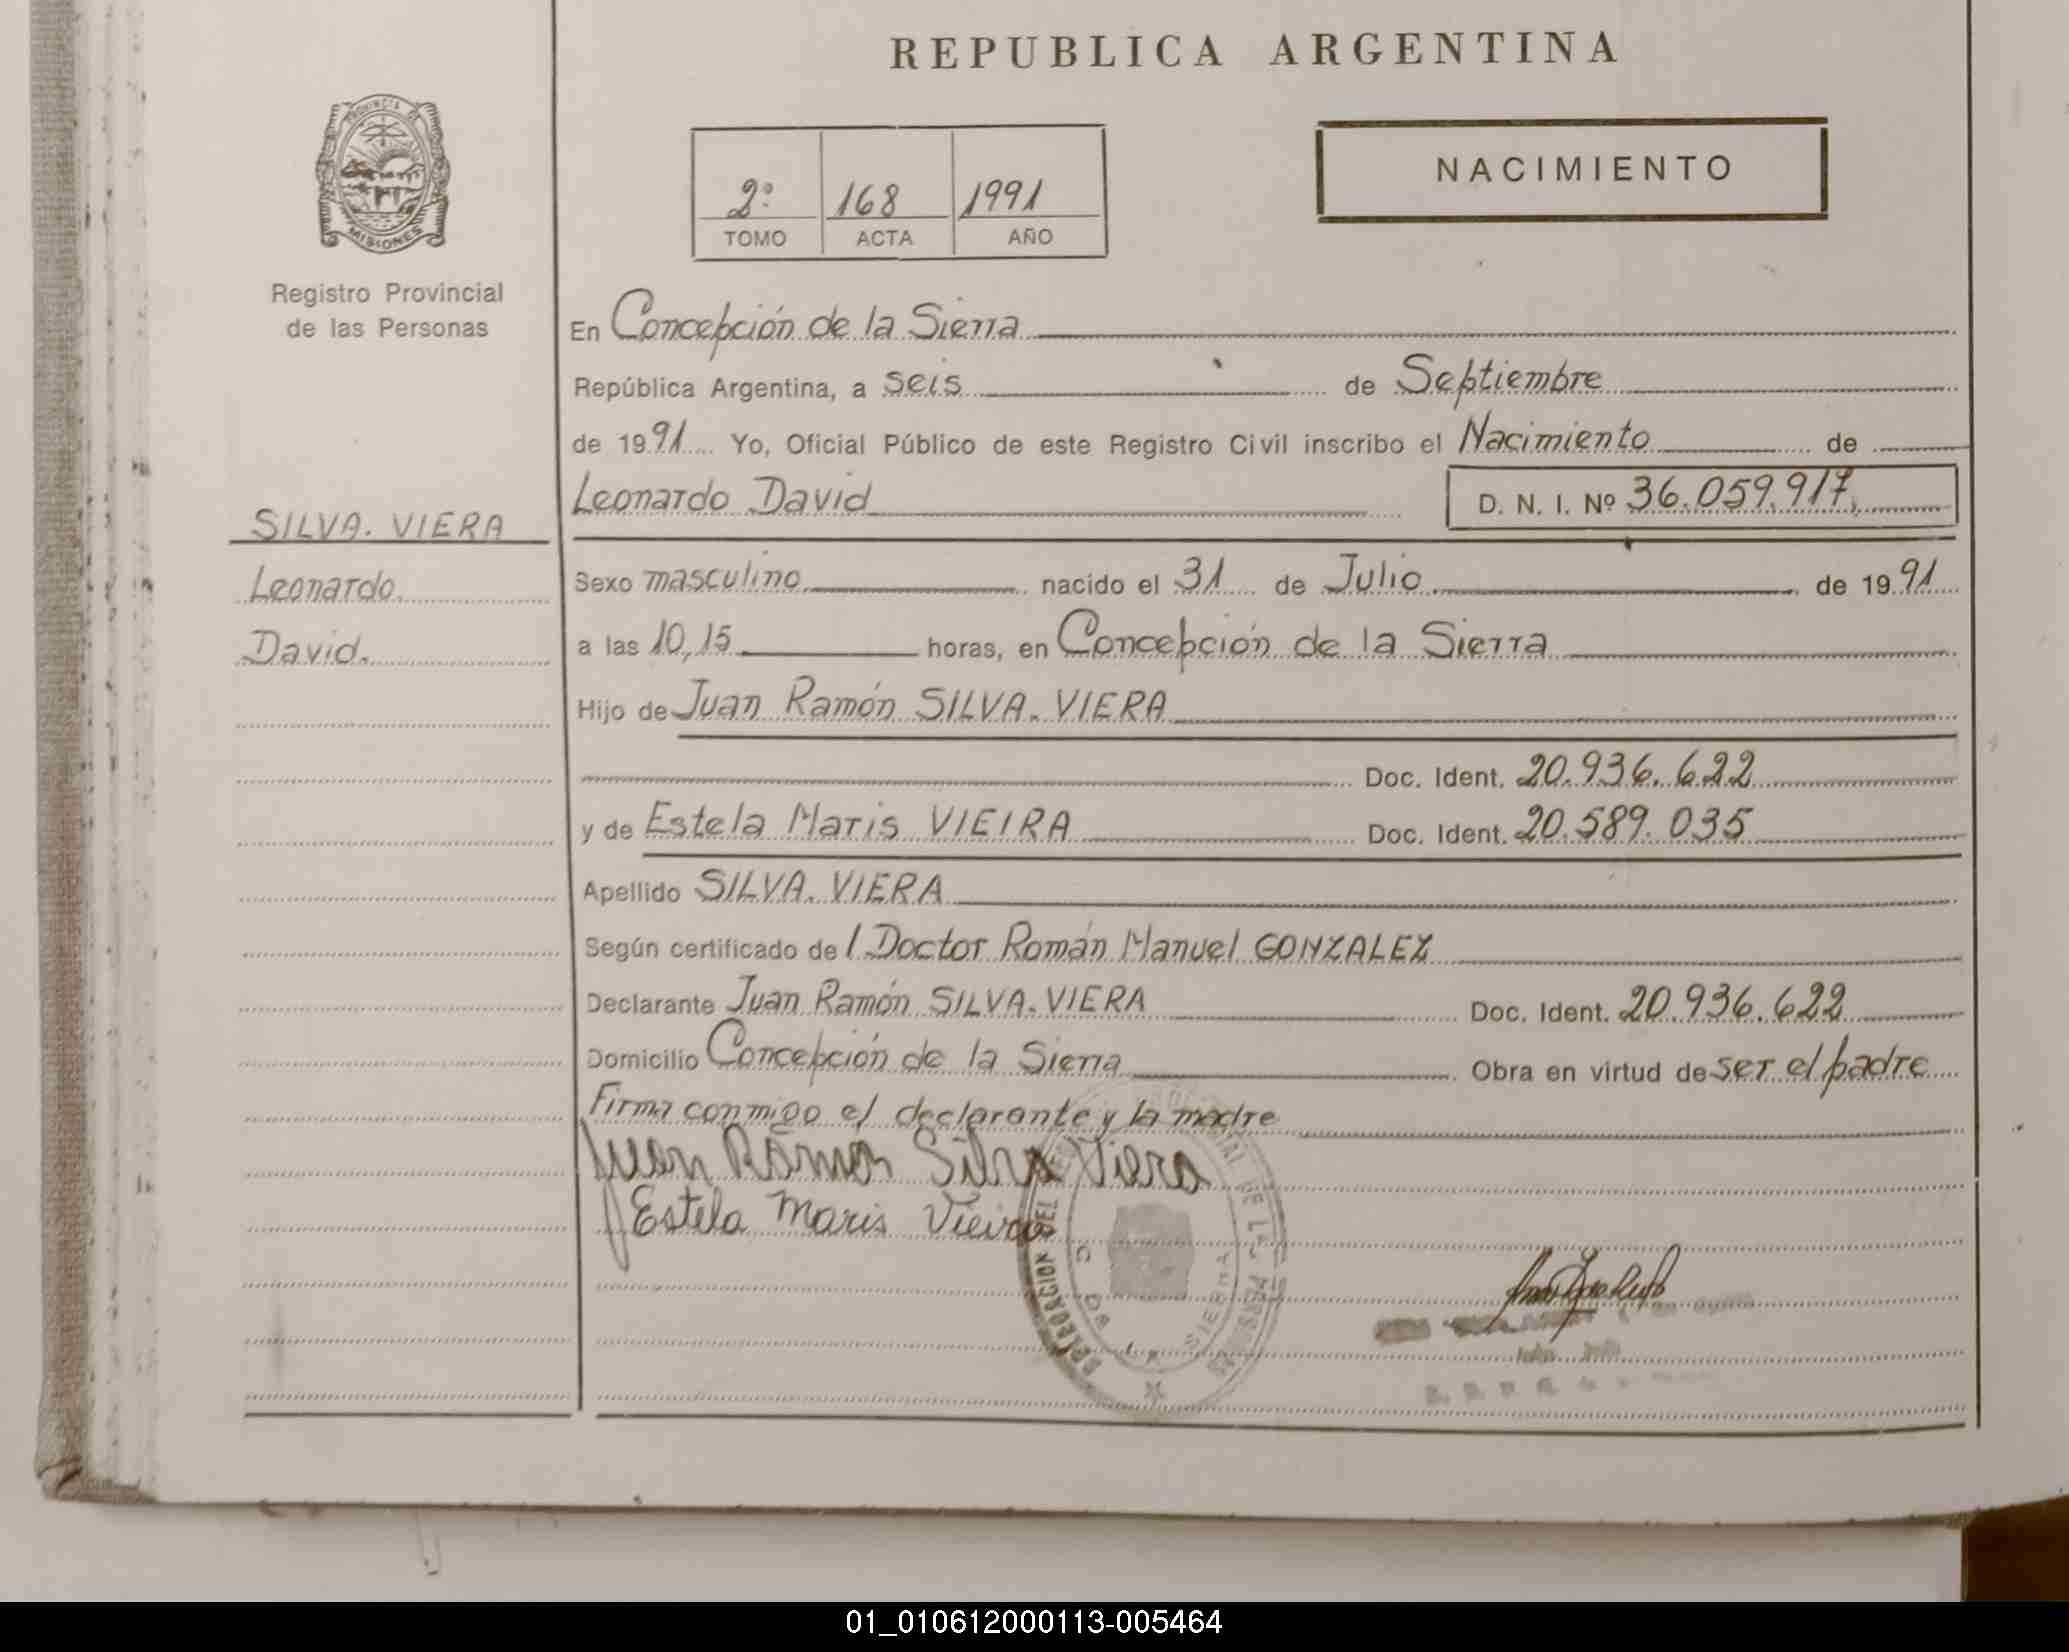 REPUBLICA ARGENTINA
PROVINCIA DE
MISIONES
Registro Provincial
de las Personas
2º 168 1991
TOMO ACTA AÑO
NACIMIENTO
En Concepción de la Sierra
República Argentina, a seis de Septiembre
de 1991 Yo, Oficial Público de este Registro Civil inscribo el Nacimiento de
Leonardo David D. N. I. Nº 36.059.917
SILVA. VIERA
Leonardo
David.
Sexo masculino nacido el 31 de Julio de 1991
a las 10,15 horas, en Concepción de la Sierra
Hijo de Juan Ramón SILVA. VIERA
Doc. Ident. 20.936.622
y de Estela Maris VIEIRA Doc. Ident. 20.589.035
Apellido SILVA. VIERA
Según certificado de l Doctor Román Manuel GONZALEZ
Declarante Juan Ramón SILVA. VIERA Doc. Ident. 20.936.622
Domicilio Concepción de la Sierra Obra en virtud de ser el padre
Firma conmigo el declarante y la madre
Juan Ramon Silva Viera
Estela Maris Vieira
DELEGACION DEL DE LAS PERSONAS
SIERRA
01_010612000113-005464